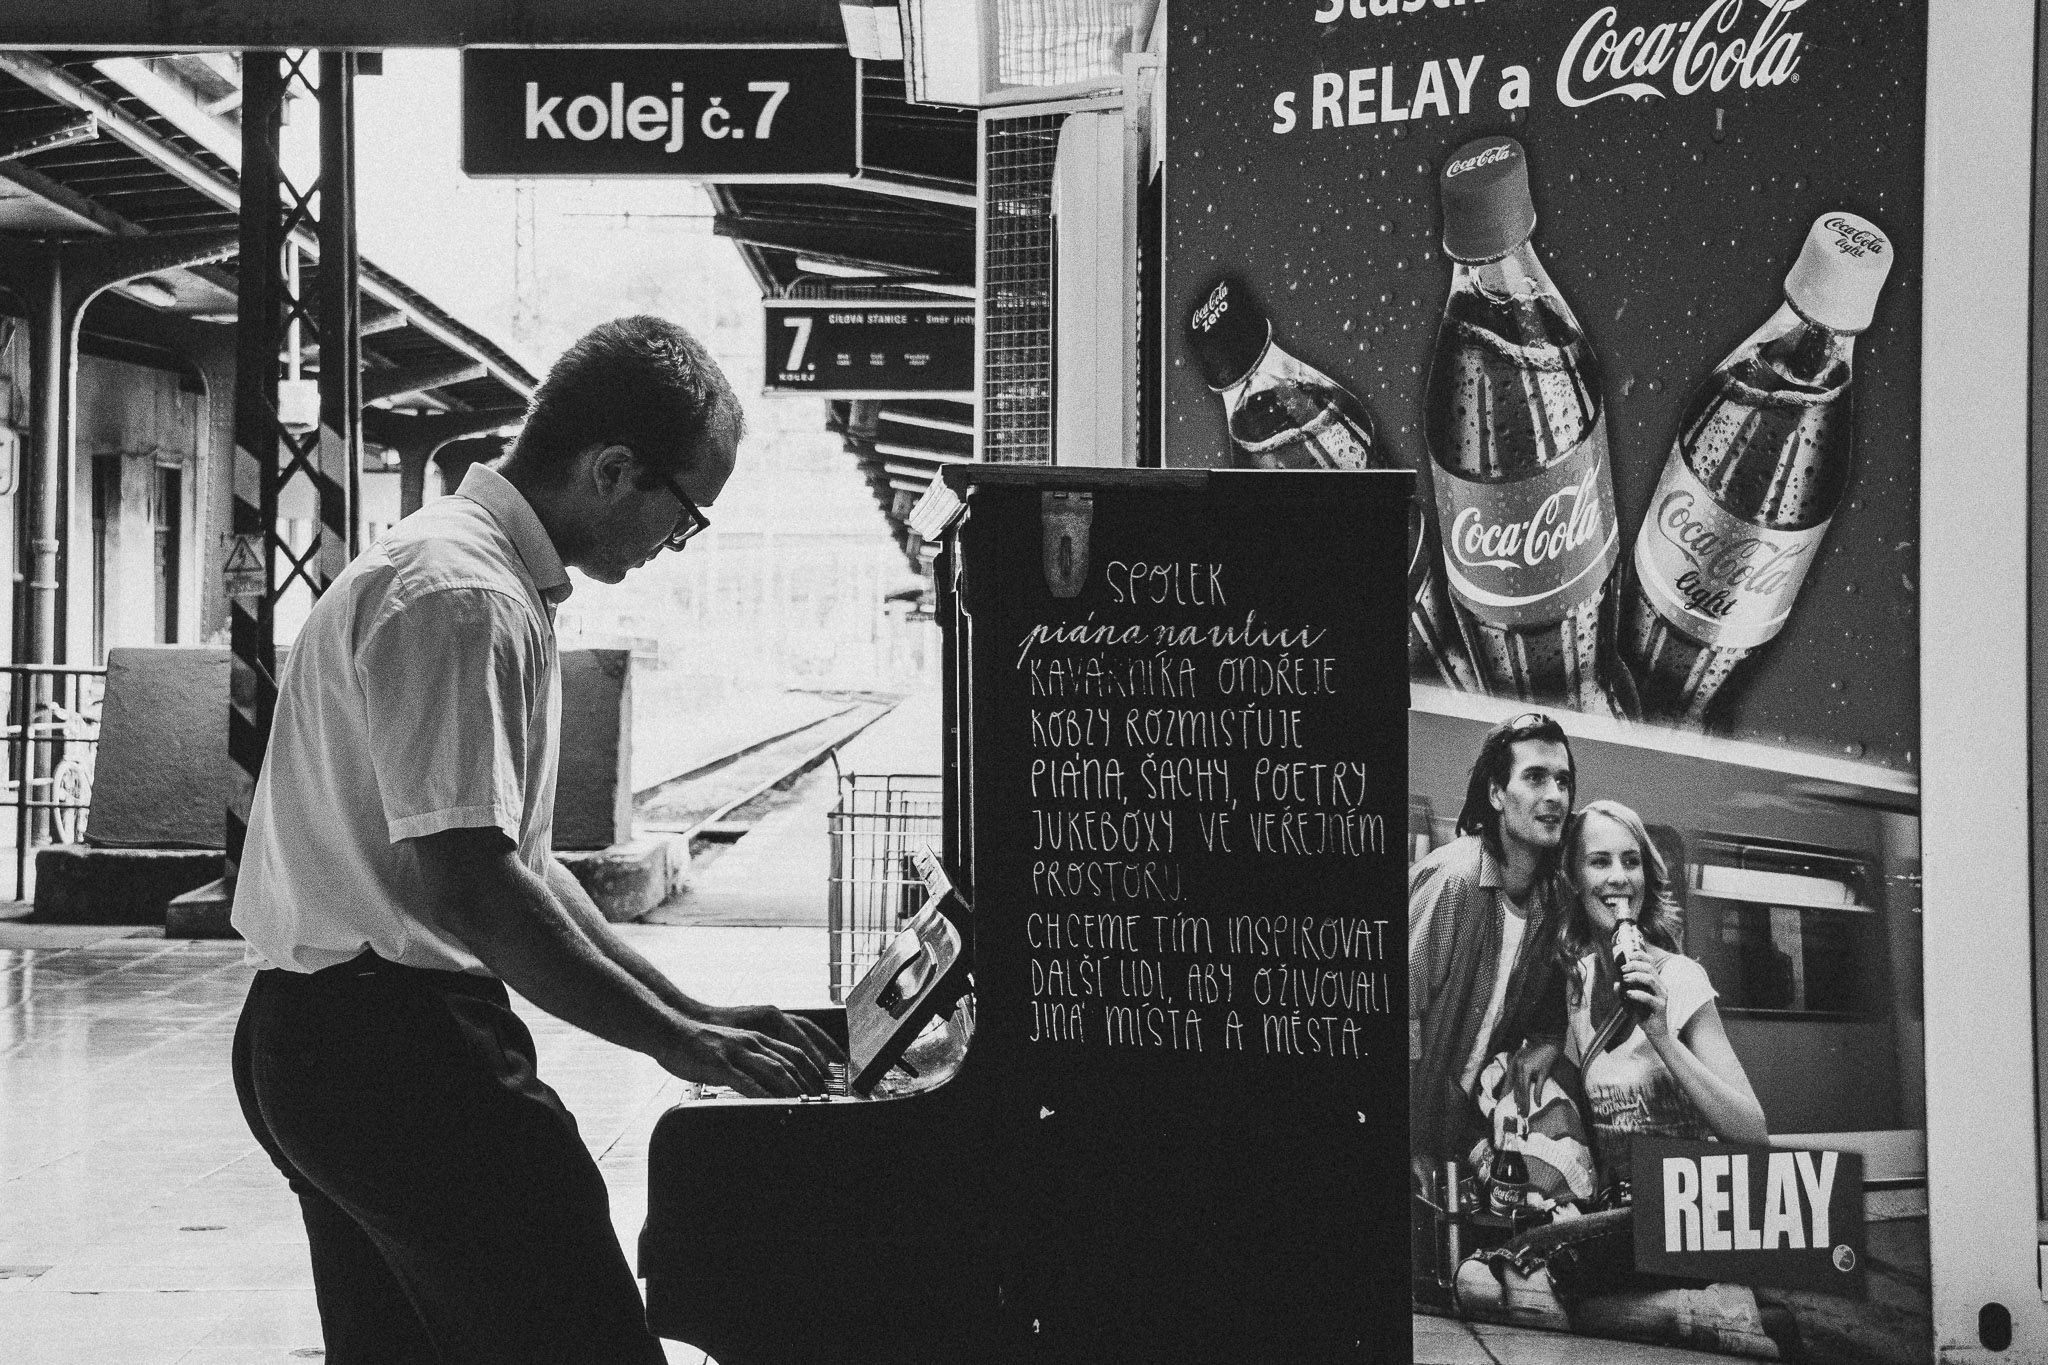 kolej č.7
7.
KOLEJ
CÍLOVÁ STANICE - Směr jízdy
s RELAY a Coca-Cola
Coca-Cola
Coca-Cola
light
Coca-Cola
zero
Coca-Cola
Coca-Cola
light
SPOLEK
piána na ulici
KAVÁRNÍKA ONDŘEJE
KOBZY ROZMISŤUJE
PIÁNA, ŠACHY, POETRY
JUKEBOXY VE VEŘEJNÉM
PROSTORU.
CHCEME TÍM INSPIROVAT
DALŠÍ LIDI, ABY OŽIVOVALI
JINÁ MÍSTA A MĚSTA.
Coca-Cola
RELAY